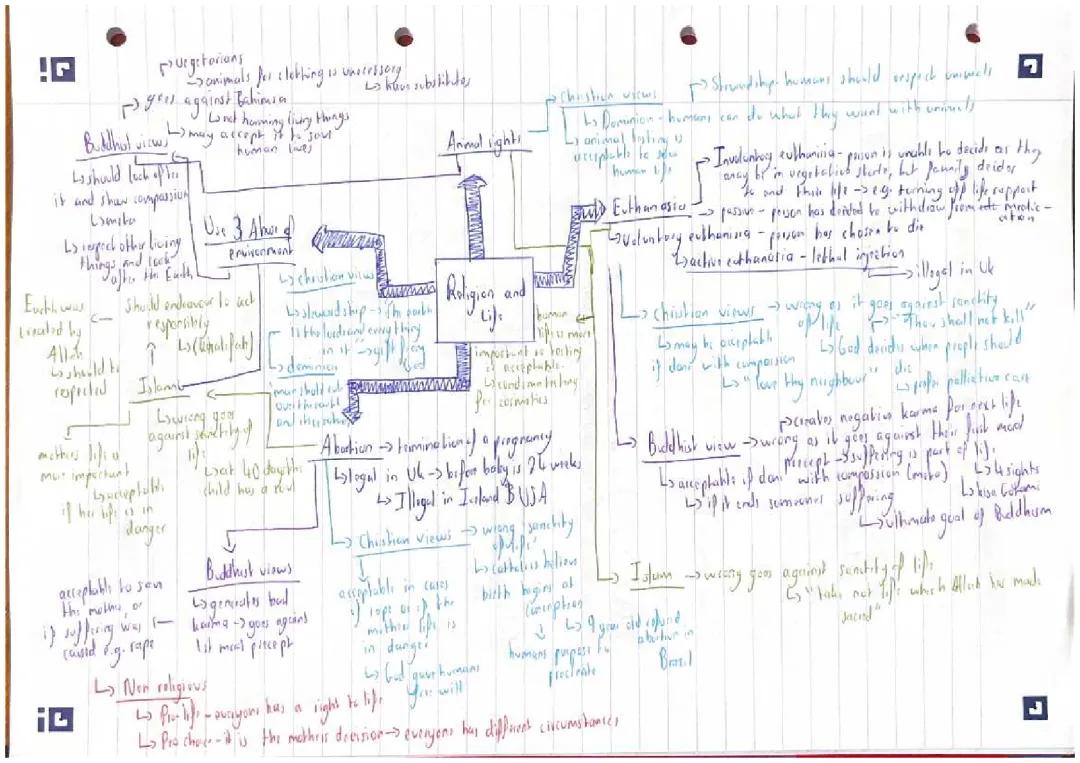 Religion and
Life
Animal rights
Buddhist views
goes against Bahimsa
vegetarians
animals for clothing is unnecessary
have substitutes
not harming living things
may accept it to save
human lives
Christian views
Stewardship - humans should respect animals
Dominion - humans can do what they want with animals
animal testing is
acceptable to save
human life
human
life is more
important so testing
is acceptable.
condemn testing
for cosmetics
Use & Abuse of
environment
should look after
it and show compassion
metta
respect other living
things and look
after the Earth
Christian views
stewardship → "the earth
is the lords and everything
in it" → gift from
God
dominion
and
Islam
should endeavour to act
responsibly
(Khalifah)
Earth was
created by
Allah
should be
respected
Euthanasia
Involuntary euthanasia - person is unable to decide as they
may be in vegetative state, but family decides
to end their life → e.g. turning off life support
passive - person has decided to withdraw from medic-
ation
Voluntary euthanasia - person has chosen to die
active euthanasia - lethal injection
illegal in UK
Christian views → wrong as it goes against sanctity
of life
"Thou shall not kill"
may be acceptable
if done with compassion
God decides when people should
die
"love thy neighbour"
prefer palliative care
Buddhist view → wrong as it goes against their first moral
precept → suffering is part of life
creates negative karma for next life
4 sights
Kisa Gotami
acceptable if done with compassion (metta)
if it ends someones suffering
ultimate goal of Buddhism
Islam → wrong goes against sanctity of life
"take not life which Allah has made
sacred"
Abortion → termination of a pregnancy
legal in UK → before baby is 24 weeks
Illegal in Ireland & USA
wrong goes
against sanctity of
life
at 40 days the
child has a soul
mothers life is
more important
acceptable
if her life is in
danger
Christian views → wrong "sanctity
of life"
catholics believe
birth begins at
conception
humans purpose to
procreate
9 year old refused
abortion in
Brazil
acceptable in cases
of rape or if the
mothers life is
in danger
God gave humans
free will
Buddhist views
generates bad
karma → goes against
1st moral precept
acceptable to save
the mother or
if suffering was
caused e.g. rape
Non religious
Pro-life - everyone has a right to life
Pro choice - it is the mothers decision → everyone has different circumstances